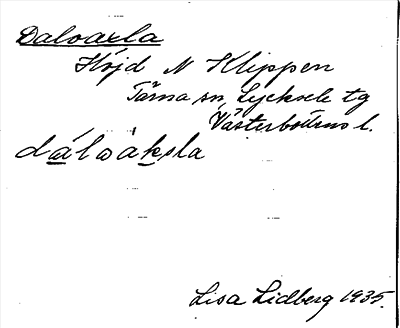 Daloaxla
Höjd N Klippen
Tärna sn, Lycksele tg
Västerbottens l.
dálоák̲sla
Lisa Lidberg 1935.